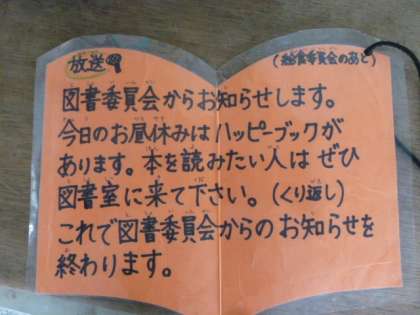 放送
(給食委員会のあと)
図書委員会からお知らせします。
今日のお昼休みはハッピーブックが
あります。本を読みたい人は ぜひ
図書室に来て下さい。(くり返し)
これで図書委員会からの お知らせを
終わります。